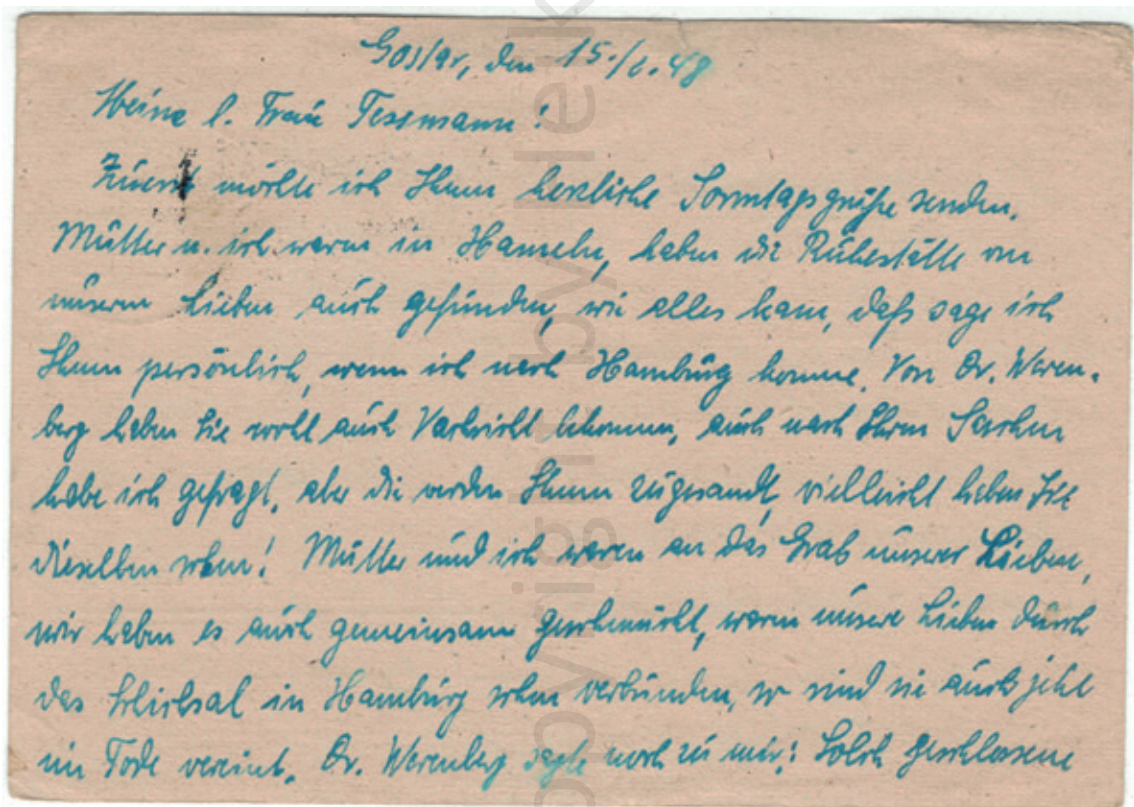 Goslar, den 15./2.48
Meine l. Frau Tessmann!
Zuerst möchte ich Ihnen herzliche Sonntagsgrüße senden.
Mutter u. ich waren in Hameln, haben die Ruhestätte von
unseren Lieben auch gefunden, wie alles kam, daß sage ich
Ihnen persönlich, wenn ich nach Hamburg komme. Von Dr. Weren-
berg haben Sie wohl auch Nachricht bekommen, auch nach Ihren Sachen
habe ich gefragt, aber die werden Ihnen zugesandt, vielleicht haben Sie
dieselben schon! Mutter und ich waren an das Grab unserer Lieben,
wir haben es auch gemeinsam geschmückt, waren unsere Lieben durch
das Schicksal in Hamburg schon verbunden, so sind sie auch jetzt
im Tode vereint. Dr. Werenberg sagte noch zu mir: Solch geschlossene